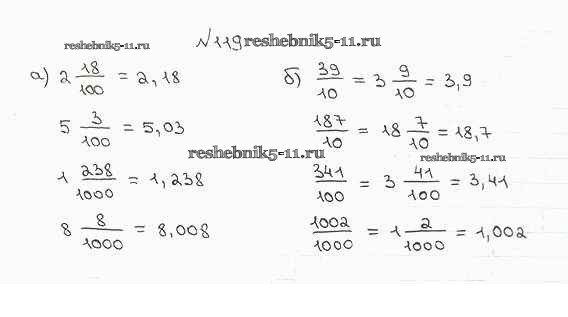 №119 reshebnik5-11.ru
reshebnik5-11.ru
а) 2 18/100 = 2,18
5 3/100 = 5,03
1 238/1000 = 1,238
8 8/1000 = 8,008
reshebnik5-11.ru
б) 39/10 = 3 9/10 = 3,9
187/10 = 18 7/10 = 18,7
reshebnik5-11.ru
341/100 = 3 41/100 = 3,41
1002/1000 = 1 2/1000 = 1,002